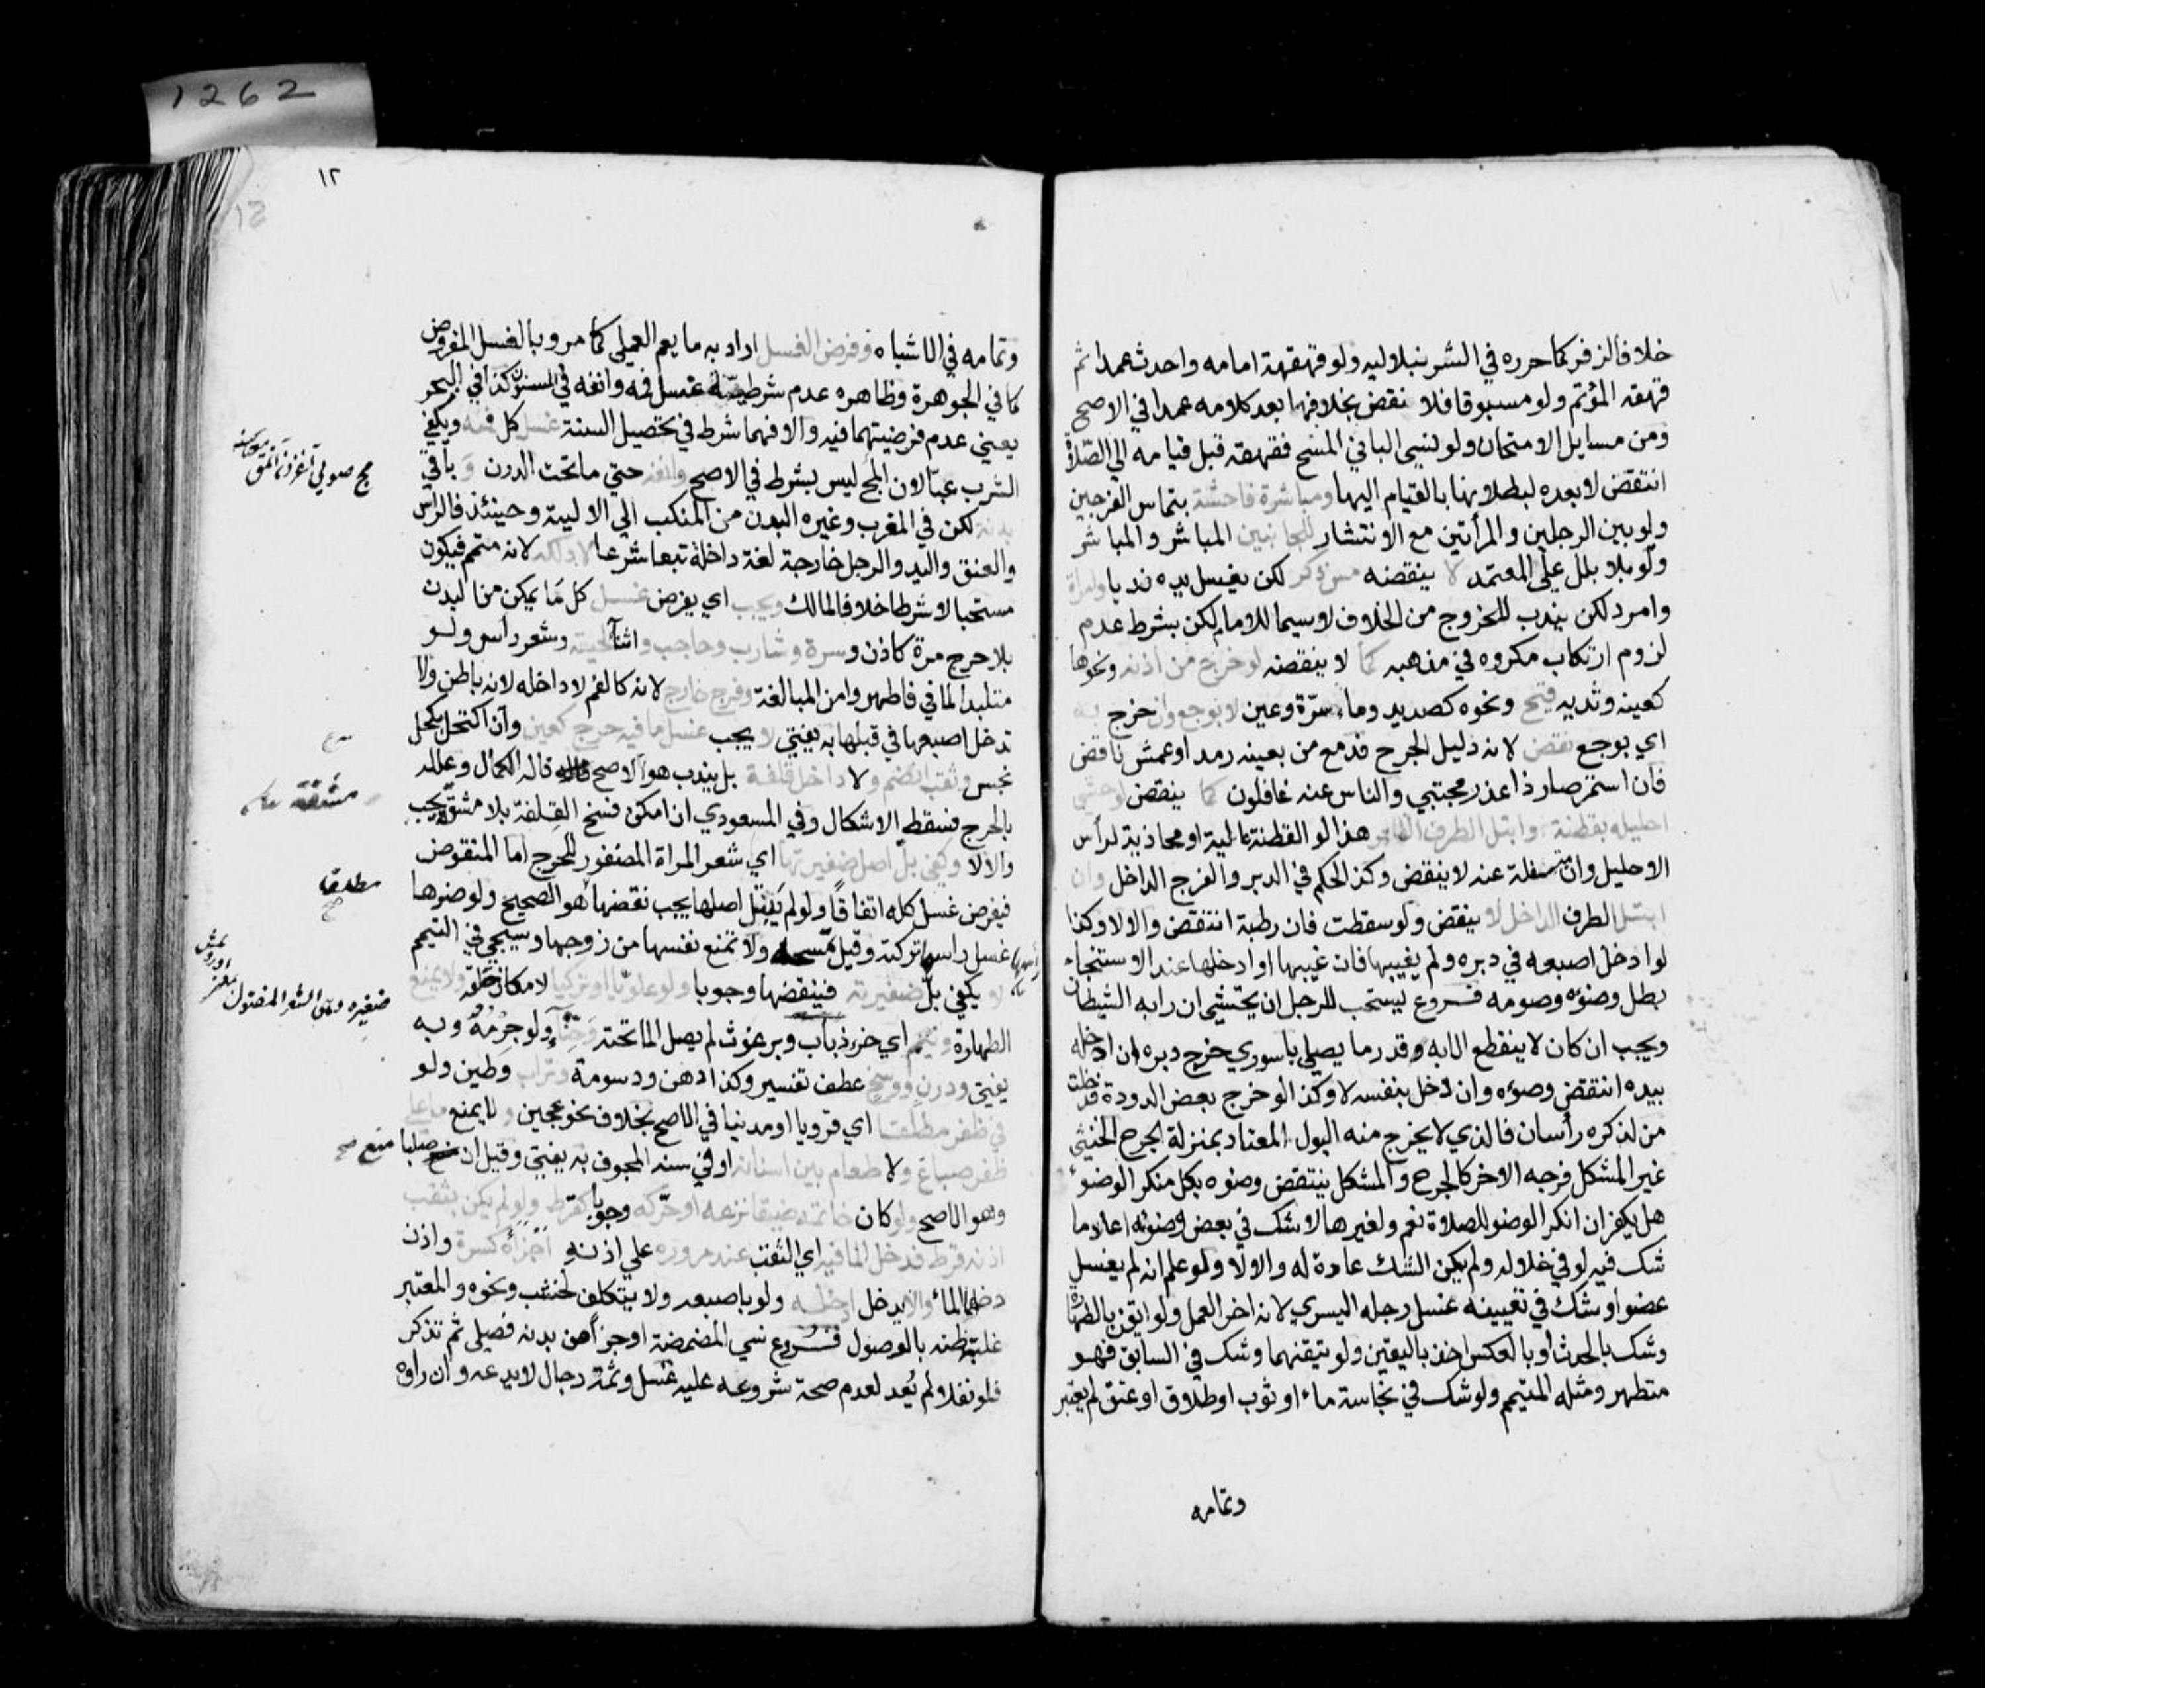 1262
خلافا لزفر كما حرره في الشرنبلاليه ولو قهقهة امامه واحدث عمدا ثم
قهقه المؤتم ولو مسبوقا فلا نقض بخلافها بعد كلامه عمدا في الاصح
ومن مسايل الامتحان ولو نسي الباني المسح فقهقه قبل قيامه الي الصلاة
انتقض لا بعده لبطلانها بالقيام اليها ومباشرة فاحشة بتماس الفرجين
ولو بين الرجلين والمرأتين مع الانتشار للجانبين المباشر والمباشر
ولو بلا بلل علي المعتمد لا ينقضه مس ذكر لكن يغسل يده ندبا وامراة
وامرد لكن يندب للخروج من الخلاف لا سيما للامام لكن بشرط عدم
لزوم ارتكاب مكروه في مذهبه كما لا ينقضه لو خرج من اذنه ونحوها
كعينه وثديه قيح ونحوه كصديد وماء سرة وعين لا بوجع وان خرج به
اي بوجع نقض لانه دليل الجرح فدمع من بعينه رمد او عمش ناقض
فان استمر صار ذا عذر مجتبي والناس عنه غافلون كما ينقض لو حشي
احليله بقطنة وابتل الطرف الظاهر هذا لو القطنة عالية او محاذية لرأس
الاحليل وان متسفلة عنه لا ينقض وكذا الحكم في الدبر والفرج الداخل وان
ابتل الطرف الداخل لا ينقض ولو سقطت فان رطبة انتقض والا لا وكذا
لو ادخل اصبعه في دبره ولم يغيبها فان غيبها او ادخلها عند الاستنجاء
بطل وضوءه وصومه فروع يستحب للرجل ان يحتشي ان رابه الشيطان
ويجب ان كان لا ينقطع الا به وقدر ما يصلي باسوري خرج دبره ان ادخله
بيده انتقض وضوءه وان دخل بنفسه لا وكذا لو خرج بعض الدودة فدخلت
من لذكره رأسان فالذي لا يخرج منه البول المعتاد بمنزلة الجرح الخنثي
غير المشكل فرجه الاخر كالجرح والمشكل ينتقض وضوه بكل منكر الوضوء
هل يكفر ان انكر الوضو للصلاة نعم ولغيرها لا شك في بعض وضوئه اعاد ما
شك فيه لو في خلاله ولم يكن الشك عادة له والا لا ولو علم انه لم يغسل
عضوا وشك في تعيينه غسل رجله اليسري لانه اخر العمل ولو ايقن بالطهارة
وشك بالحدث او بالعكس اخذ باليقين ولو تيقنهما وشك في السابق فهو
متطهر ومثله المتيمم ولو شك في نجاسة ماء او ثوب او طلاق او عتق لم يعتبر
وتمامه
١٢
وتمامه في الاشباه وفرض الغسل اراد به ما يعم العملي كما مر وبالغسل المفروض
كما في الجوهرة وظاهره عدم شرطية غسل فمه وانفه في المسنون كذا في البحر
يعني عدم فرضيتهما فيه والا فهما شرط في تحصيل السنة غسل كل فمه ويكفي
الشرب عبا لان المج ليس بشرط في الاصح وانفه حتي ما تحت الدرن و باقي
بدنه لكن في المغرب وغيره البدن من المنكب الي الالية وحينئذ فالراس
والعنق واليد والرجل خارجة لغة داخلة تبعا شرعا لا دلكه لانه متمم فيكون
مستحبا لا شرطا خلافا لمالك ويجب اي يفرض غسل كل ما يمكن من البدن
بلا حرج مرة كاذن وسرة وشارب وحاجب واثناء لحية وشعر راس ولو
متلبدا لما في فاطهروا من المبالغة وفرج خارج لانه كالفم لا داخله لانه باطن ولا
تدخل اصبعها في قبلها به يفتي لا يجب غسل ما فيه حرج كعين وان اكتحل بكحل
نجس وثقب انضم ولا داخل قلفة بل يندب هو الاصح قاله الكمال وعلله
بالحرج فسقط الاشكال وفي المسعودي ان امكن فسخ القلفة بلا مشقة يجب
والا لا وكفي بل اصل ضفيرتها اي شعر المراة المضفور للحرج اما المنقوض
فيفرض غسل كله اتفاقا ولو لم يبتل اصلها يجب نقضها هو الصحيح ولو ضرها
غسل راسها تركته وقيل تمسحه ولا تمنع نفسها من زوجها وسيجي في التيمم
لا يكفي بل ضفيرته فينقضها وجوبا ولو علويا او تركيا لامكان حلقه ولا يمنع
الطهارة ونيم اي خرء ذباب وبرغوث لم يصل الماء تحته وحناء ولو جرمه وبه
يفتي ودرن ووسخ عطف تفسير وكذا دهن ودسومة وتراب وطين ولو
في ظفر مطلقا اي قرويا او مدنيا في الاصح بخلاف نحو عجين ولا يمنع ما علي
ظفر صباغ ولا طعام بين اسنانه او في سنه المجوف به يفتي وقيل ان صلبا منع صح
وهو الاصح ولو كان خاتمه ضيقا نزعه او حركه وجوبا كقرط ولو لم يكن بثقب
اذنه قرط فدخل الماء فيه اي الثقب عند مروره علي اذنه اجزأه كسرة واذن
دخلهما الماء والا يدخل ادخله ولو باصبعه ولا يتكلف لخشب ونحوه والمعتبر
غلبة ظنه بالوصول فروع نسي المضمضة او جزأ من بدنه فصلي ثم تذكر
فلو نفلا لم يعد لعدم صحة شروعه عليه غسل وثمة رجال لا يدعه وان راوه
مشقة
مطلقا
صح
ضفيره
الشعر المفتول